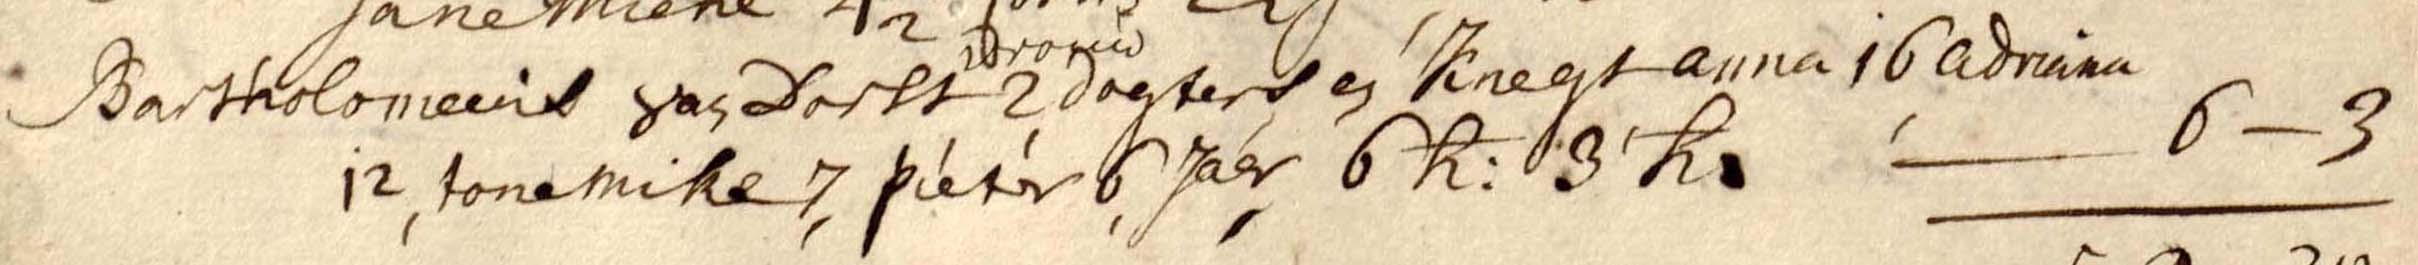 janemiene 4 2
vrouw
Bartholomeeus van Dorst 2 dogters en 1 knegt anna 16 adriana
12, tonemike 7, pieter 6 Jaer 6 k: 3 k. 6 – 3